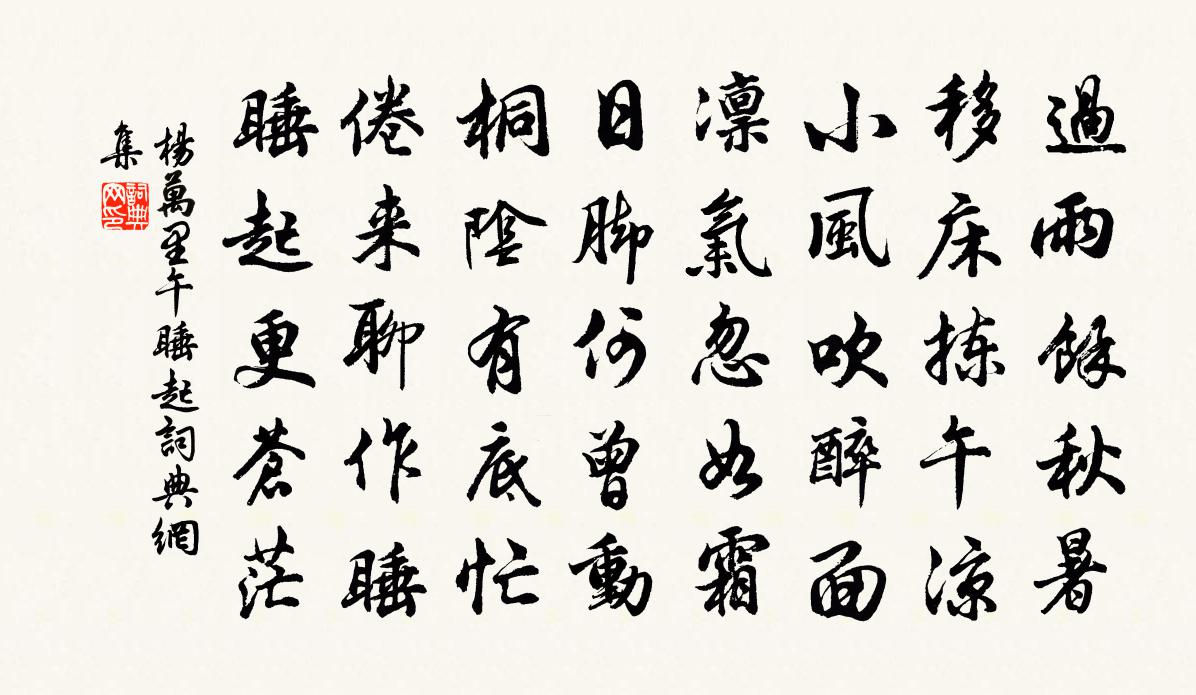 過雨餘秋暑
移床揀午涼
小風吹醉面
凛氣忽如霜
日脚何曾動
桐陰有底忙
倦来聊作睡
睡起更蒼茫
楊萬里午睡起詞典網
集
詞典
网印